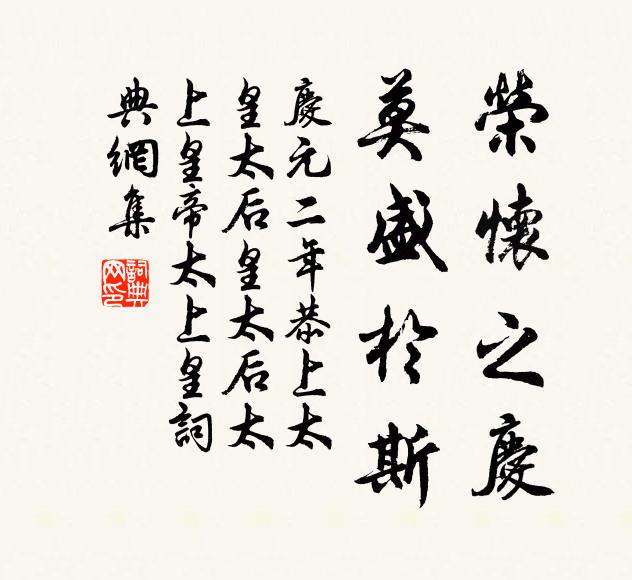 榮懷之慶
莫盛於斯
慶元二年恭上太
皇太后皇太后太
上皇帝太上皇詞
典網集
詞典網印